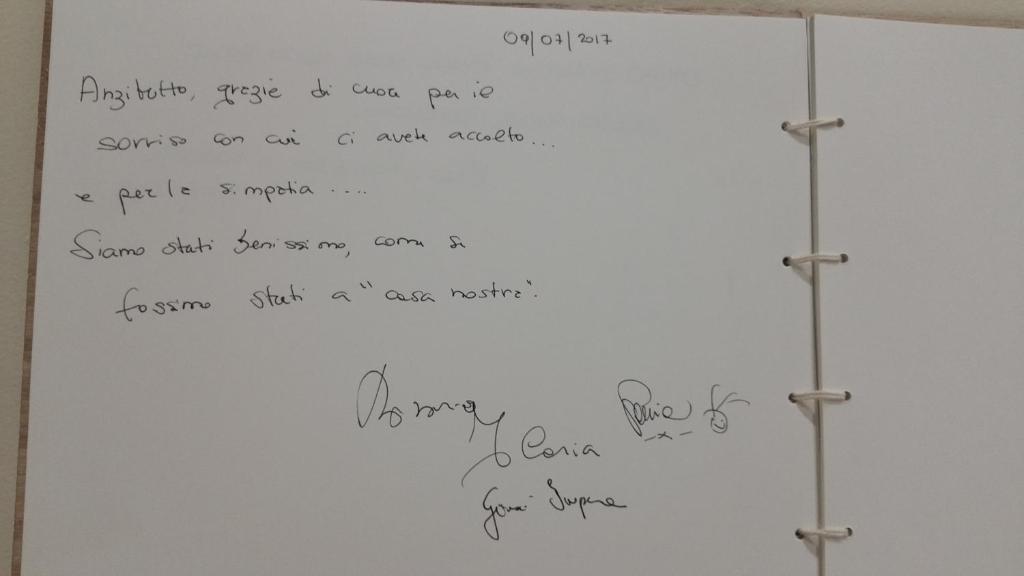 09/07/2017
Anzitutto, grazie di cuore per il
sorriso con cui ci avete accolto...
e per la simpatia ....
Siamo stati benissimo, come se
fossimo stati a "casa nostra".